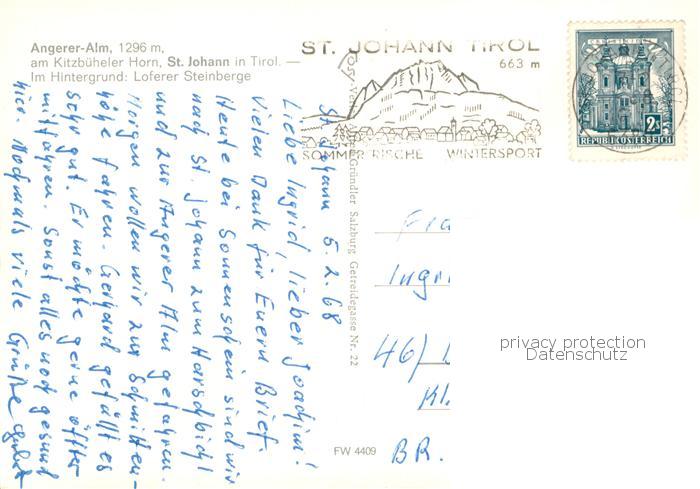 Angerer-Alm, 1296 m,
am Kitzbüheler Horn, St. Johann in Tirol. —
Im Hintergrund: Loferer Steinberge
ST. JOHANN TIROL
663 m
SOMMERFRISCHE WINTERSPORT
2S
REPUBLIK ÖSTERREICH
St. Johann 5.2.68
Liebe Ingrid, lieber Joachim!
Vielen Dank für Euern Brief.
Heute bei Sonnenschein sind wir
nach St. Johann zum Harschbichl
und zur Angerer Alm gefahren.
Morgen wollen wir zur Schmitten-
höhe fahren. Gerhard gefällt es
sehr gut. Er möchte gerne öfter
mitfahren. Sonst alles noch gesund
hier. Nochmals viele Grüße
Gründler Salzburg Getreidegasse Nr. 22
Ingr
46/
Kl.
BR.
FW 4409
privacy protection
Datenschutz